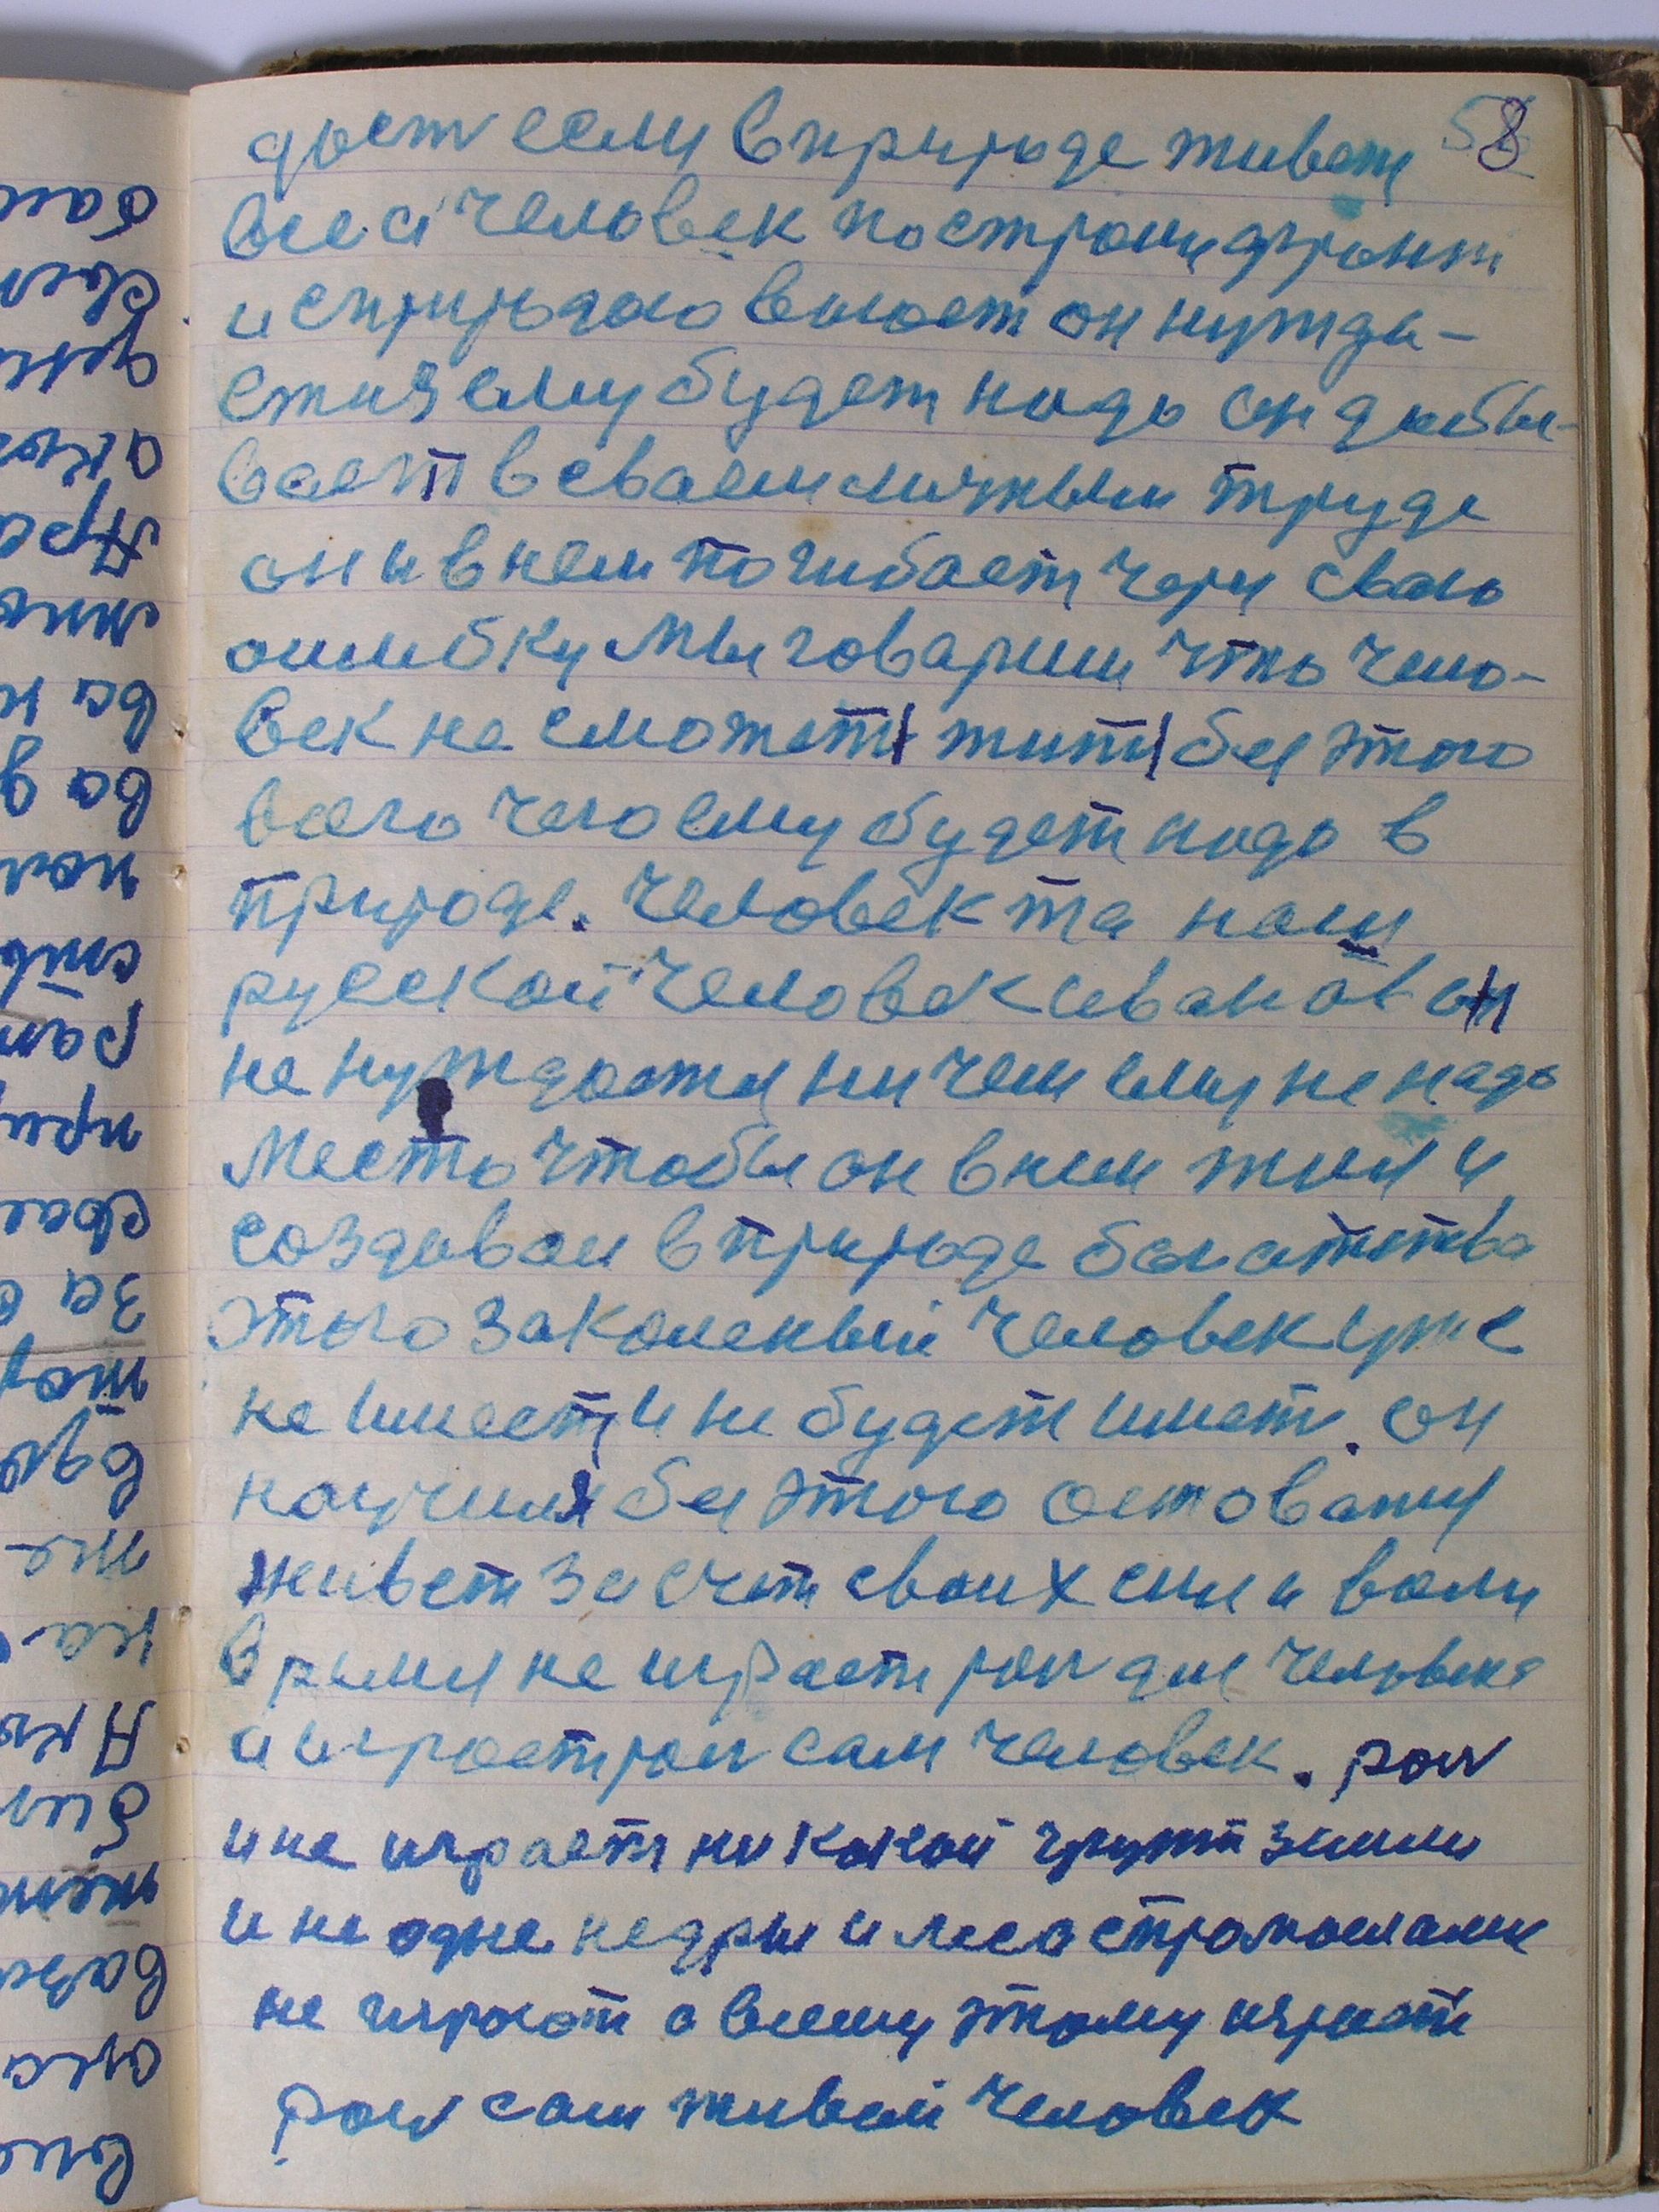 58
дает если в природе живет
все а человек построил фронт
и с природаю воюет он нужда-
ется ему будет надо он добы-
вает в сваем личным труде
он и в нем погибает через сваю
ошибку мы говарим что чело-
век не сможет жить без этого
всего чего ему будет надо в
природе. Человек та наш
русской человек иванов он
не нуждается ни чем ему не надо
место чтобы он в нем жил и
создавал в природе богатства
этого закаленый человек уже
не имеет и не будет имет. он
научился без этого оставатися
живет за счет своих сил и воли
время не играет рол для человека
а играет рол сам человек. рол
и не играет ни какой грунт земли
и не одне недры и леса с промыслами
не играют а всему этому играет
рол сам живой человек